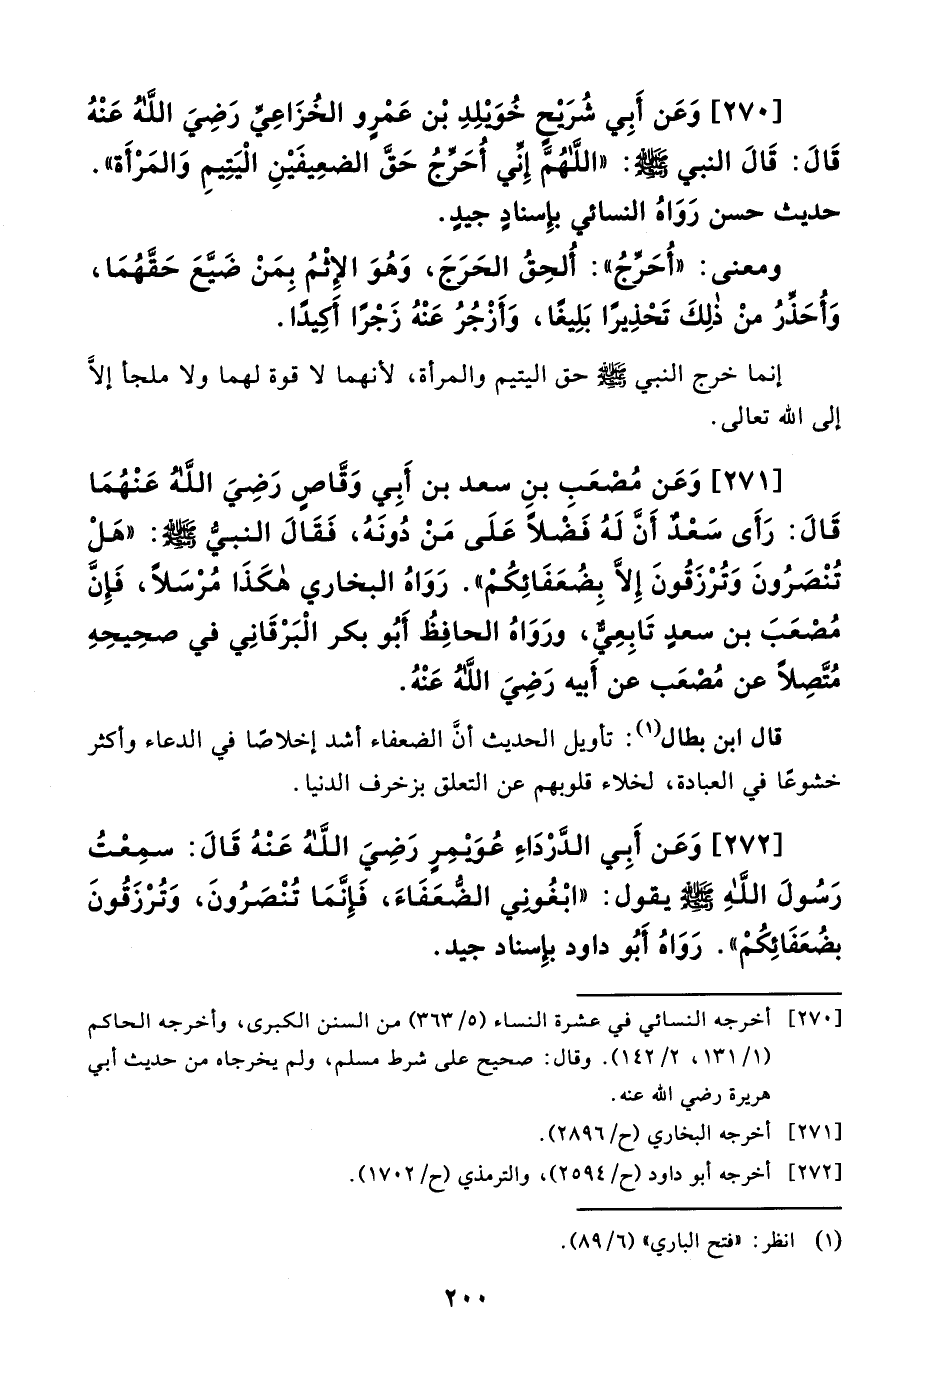 [٢٧٠] وَعَن أَبِي شُرَيْحٍ خُوَيْلِدِ بْن عَمْرٍو الخُزَاعِيِّ رَضِيَ اللَّهُ عَنْهُ
قَالَ: قَالَ النبي ﷺ: «اللَّهُمَّ إِنِّي أُحَرِّجُ حَقَّ الضعِيفَيْنِ الْيَتِيمِ وَالمَرْأَة».
حديث حسن رَوَاهُ النسائي بإسنادٍ جيدٍ.
ومعنى: «أُحَرِّجُ»: أُلحِقُ الحَرَجَ، وَهُوَ الإِثْمُ بِمَنْ ضَيَّعَ حَقَّهُمَا،
وَأُحَذِّرُ منْ ذٰلِكَ تَحْذِيرًا بَلِيغًا، وَأَزْجُرُ عَنْهُ زَجْرًا أَكِيدًا.
إنما خرج النبي ﷺ حق اليتيم والمرأة، لأنهما لا قوة لهما ولا ملجأ إلاَّ
إلى الله تعالى.
[٢٧١] وَعَن مُصْعَبِ بنِ سعد بن أَبِي وَقَّاصٍ رَضِيَ اللَّهُ عَنْهُمَا
قَالَ: رَأَى سَعْدٌ أَنَّ لَهُ فَضْلاً عَلَى مَنْ دُونَهُ، فَقَالَ النبيُّ ﷺ: «هَلْ
تُنْصَرُونَ وَتُرْزَقُونَ إِلاَّ بِضُعَفَائِكُمْ». رَوَاهُ البخاري هٰكَذَا مُرْسَلاً، فَإِنَّ
مُصْعَبَ بن سعدٍ تَابِعِيٌّ، ورَوَاهُ الحافِظُ أَبُو بكر الْبَرْقَانِي في صحِيحِهِ
مُتَّصِلاً عن مُصْعَب عن أَبيه رَضِيَ اللَّهُ عَنْهُ.
قال ابن بطال(١): تأويل الحديث أنَّ الضعفاء أشد إخلاصًا في الدعاء وأكثر
خشوعًا في العبادة، لخلاء قلوبهم عن التعلق بزخرف الدنيا.
[٢٧٢] وَعَن أَبِي الدَّرْدَاءِ عُوَيْمِرٍ رَضِيَ اللَّهُ عَنْهُ قَالَ: سمِعْتُ
رَسُولَ اللَّهِ ﷺ يقول: «ابْغُونِي الضُّعَفَاءَ، فَإِنَّمَا تُنْصَرُونَ، وَتُرْزَقُونَ
بضُعَفَائِكُمْ». رَوَاهُ أَبُو داود بإسناد جيد.
[٢٧٠] أخرجه النسائي في عشرة النساء (٥/ ٣٦٣) من السنن الكبرى، وأخرجه الحاكم
(١/ ١٣١، ٢/ ١٤٢). وقال: صحيح على شرط مسلم، ولم يخرجاه من حديث أبي
هريرة رضي الله عنه.
[٢٧١] أخرجه البخاري (ح/ ٢٨٩٦).
[٢٧٢] أخرجه أبو داود (ح/ ٢٥٩٤)، والترمذي (ح/ ١٧٠٢).
(١) انظر: «فتح الباري» (٦/ ٨٩).
٢٠٠